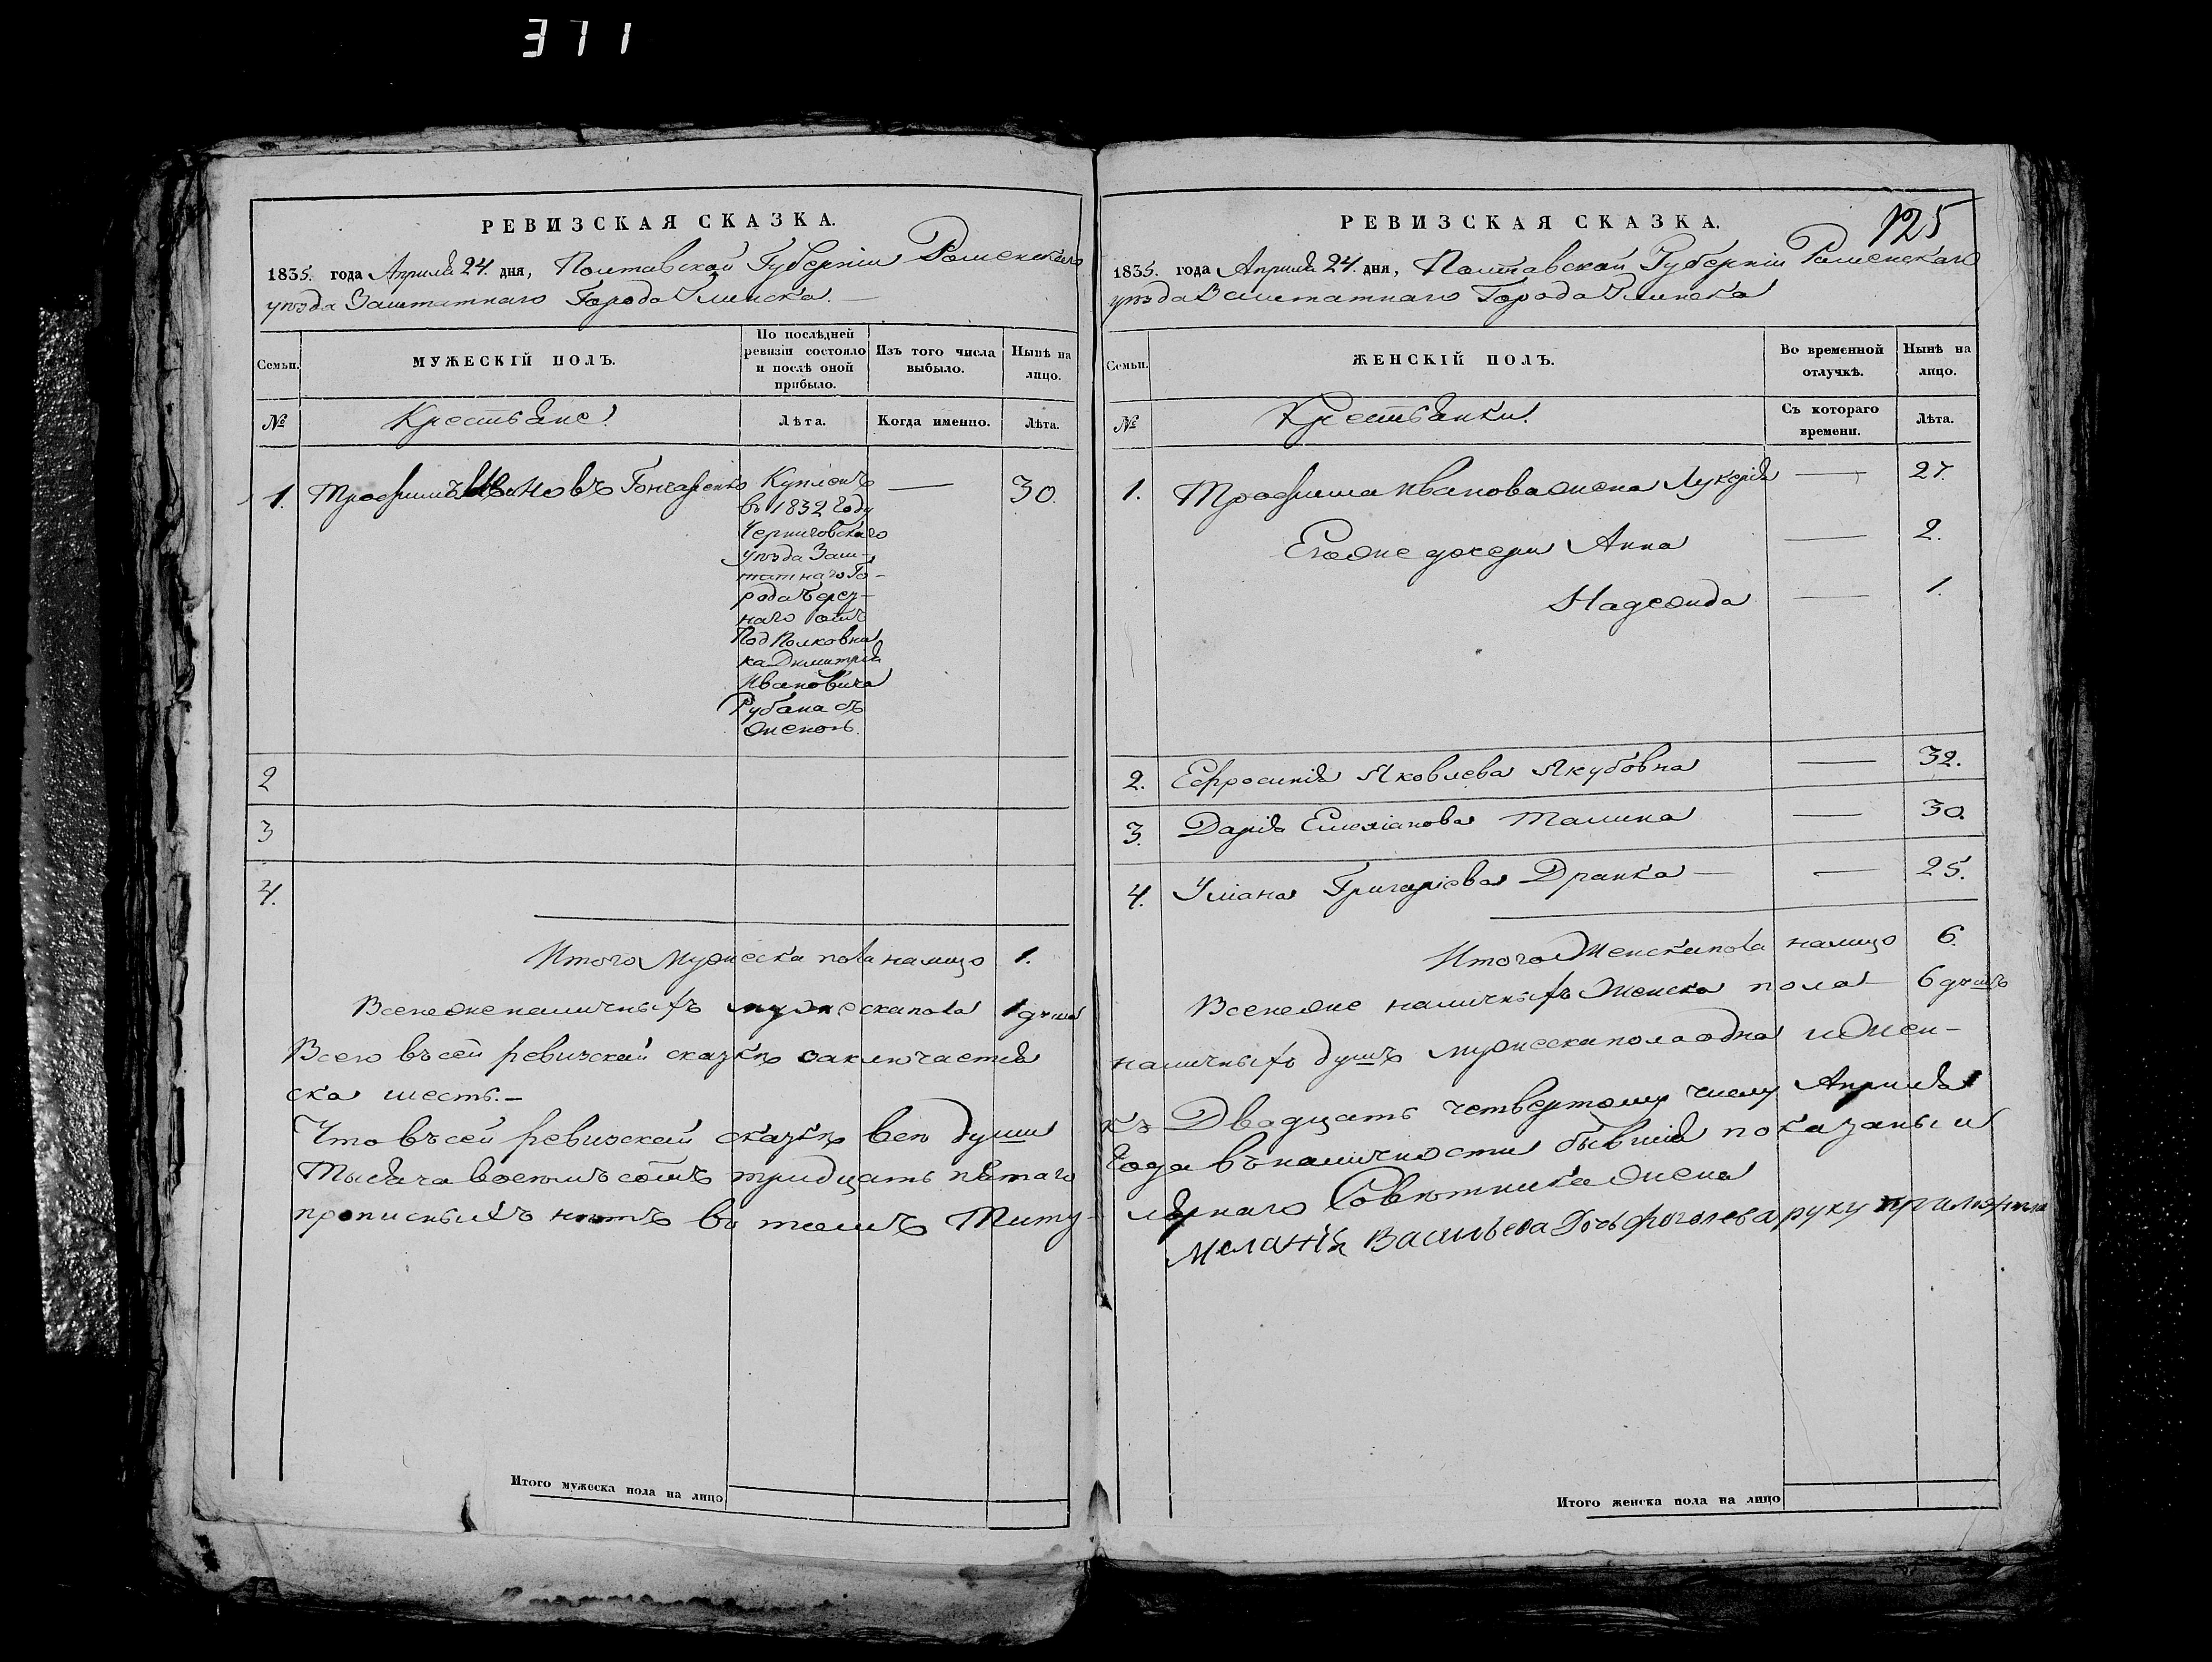 371
РЕВИЗСКАЯ СКАЗКА.
1835. года Апрѣля 24. дня, Полтавской Губерніи Роменскаго
уѣзда Заштатнаго Города Глинска.
Семьи.
МУЖЕСКІЙ ПОЛЪ.
По послѣдней
ревизіи состояло
и послѣ оной
прибыло.
Изъ того числа
выбыло.
Нынѣ на
лицо.
№
Крестьяне
Лѣта.
Когда именно.
Лѣта.
1. Трофимъ Ивановъ Гончаренко
Купленъ
въ 1832 году
Черниговскаго
уѣзда Заш-
татнаго Го-
рода Берез-
наго отъ
Подполковни
ка Димитрія
Ивановича
Рубана съ
женою.
— 30.
2
3
4.
Итого Мужеска пола налицо 1.
Всего же наличныхъ мужеска пола 1 душа
Всего въ сей ревизской сказкѣ заключается
ска шесть.—
Что въ сей ревизской сказкѣ всѣ души
Тысяча восемъ сотъ тридцать пятаго
прописныхъ нѣтъ въ томъ Титу-
Итого мужеска пола на лицо
125
РЕВИЗСКАЯ СКАЗКА.
1835. года Апрѣля 24. дня, Полтавской Губерніи Роменскаго
уѣзда Заштатнаго Города Глинска
Семьи.
ЖЕНСКІЙ ПОЛЪ.
Во временной
отлучкѣ.
Нынѣ на
лицо.
№
Крестьянки.
Съ котораго
времени.
Лѣта.
1. Трофима Иванова жена Лукерія — 27.
Его же дочери Анна — 2.
Надежда — 1.
2. Ефросинія Яковлева Якубовна — 32.
3. Дарія Емеліанова Талина — 30.
4. Уліана Григоріева Дранка — — 25.
Итого Женска пола налицо 6.
Всего же наличныхъ Женска пола 6 душъ
наличныхъ душъ мужеска пола одна и Жен-
къ Двадцать четвертому числу Апрѣля
года въ наличности бывшія показаны и
лярнаго Совѣтника жена
Меланія Васильева Дочь руку приложила
Итого женска пола на лицо